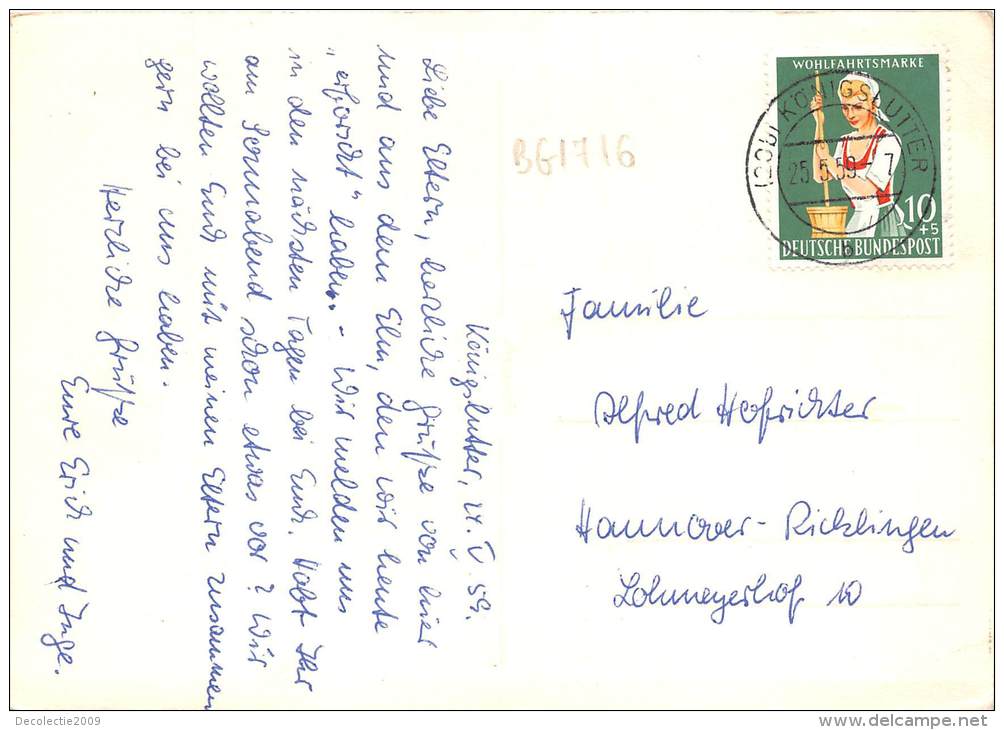 Königslutter, 24. V. 59.
Liebe Eltern, herzliche Grüße von hier
und aus dem Elm, den wir heute
„erforscht" haben. - Wir melden uns
in den nächsten Tagen bei Euch. Habt Ihr
am Sonnabend schon etwas vor? Wir
wollten Euch mit meinen Eltern zusammen
gern bei uns haben.
Herzliche Grüße
Eure Erich und Inge.
BG1716
WOHLFAHRTSMARKE
KÖNIGSLUTTER
25.5.59-7
b
10
+5
DEUTSCHE BUNDESPOST
Familie
Alfred Hofrichter
Hannover-Ricklingen
Lohmeyerhof 10
Decolectie2009
delcampe.net